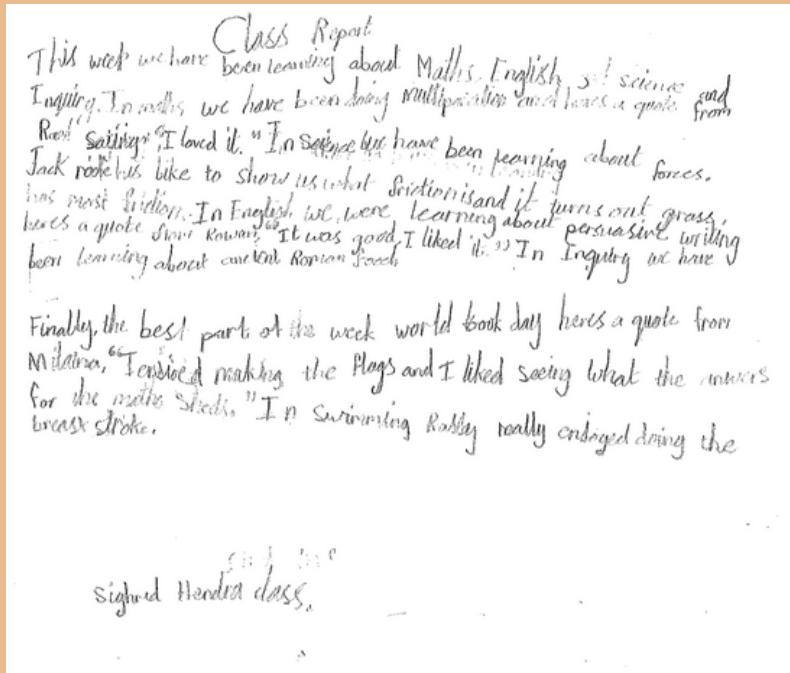 Class Report
This week we have been learning about Maths, English, science and
Inquiry. In maths we have been doing multiplication and heres a quote from
saiing "I loved it." In Science we have been learning about forces.
Jack like to show us what friction is and it turns out grass,
has most friction. In English, we were learning about persuasive writing
heres a quote from Rowan, "It was good, I liked it." In Inquiry we have
been learning about ancient Roman food.
Finally, the best part of the week world book day heres a quote from
making the flags and I liked seeing what the
for the maths sheds." In Swimming really doing the
breast stroke.
Hendra class.